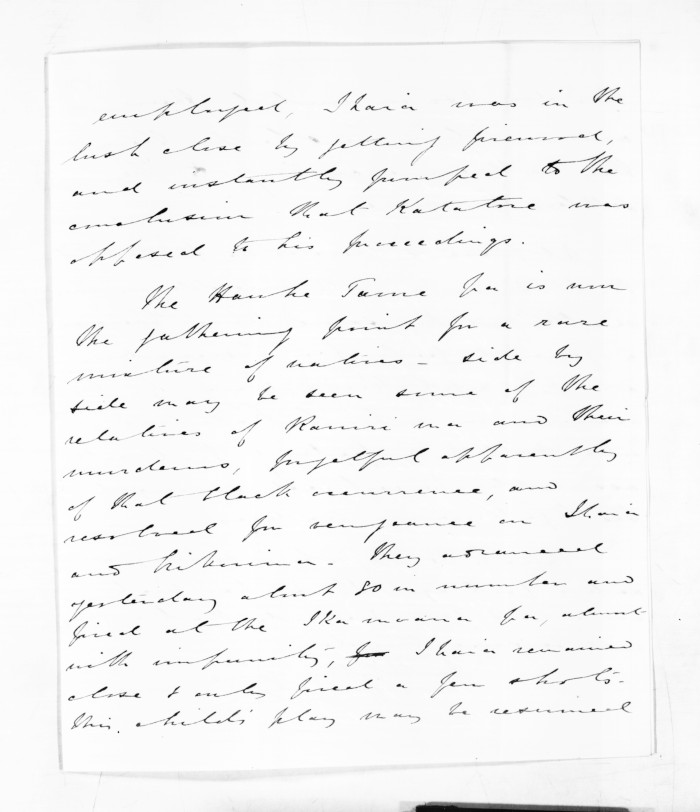 employed, Ihaia was in the
bush close by getting firewood,
and instantly jumped to the
conclusion that Katatore was
opposed to his proceedings.
The Hauhe Tame pa is now
the gathering point for a rare
mixture of natives – side by
side may be seen some of the
relatives of Rawiri ma and their
murderers, forgetful apparently
of that black occurrence, and
resolved for vengeance on Ihaia
and Nikorima. They advanced
yesterday about 80 in number and
fired at the Ika moana pa, almost
with impunity, for Ihaia remained
close & only fired a few shots.
This child's play may be resumed